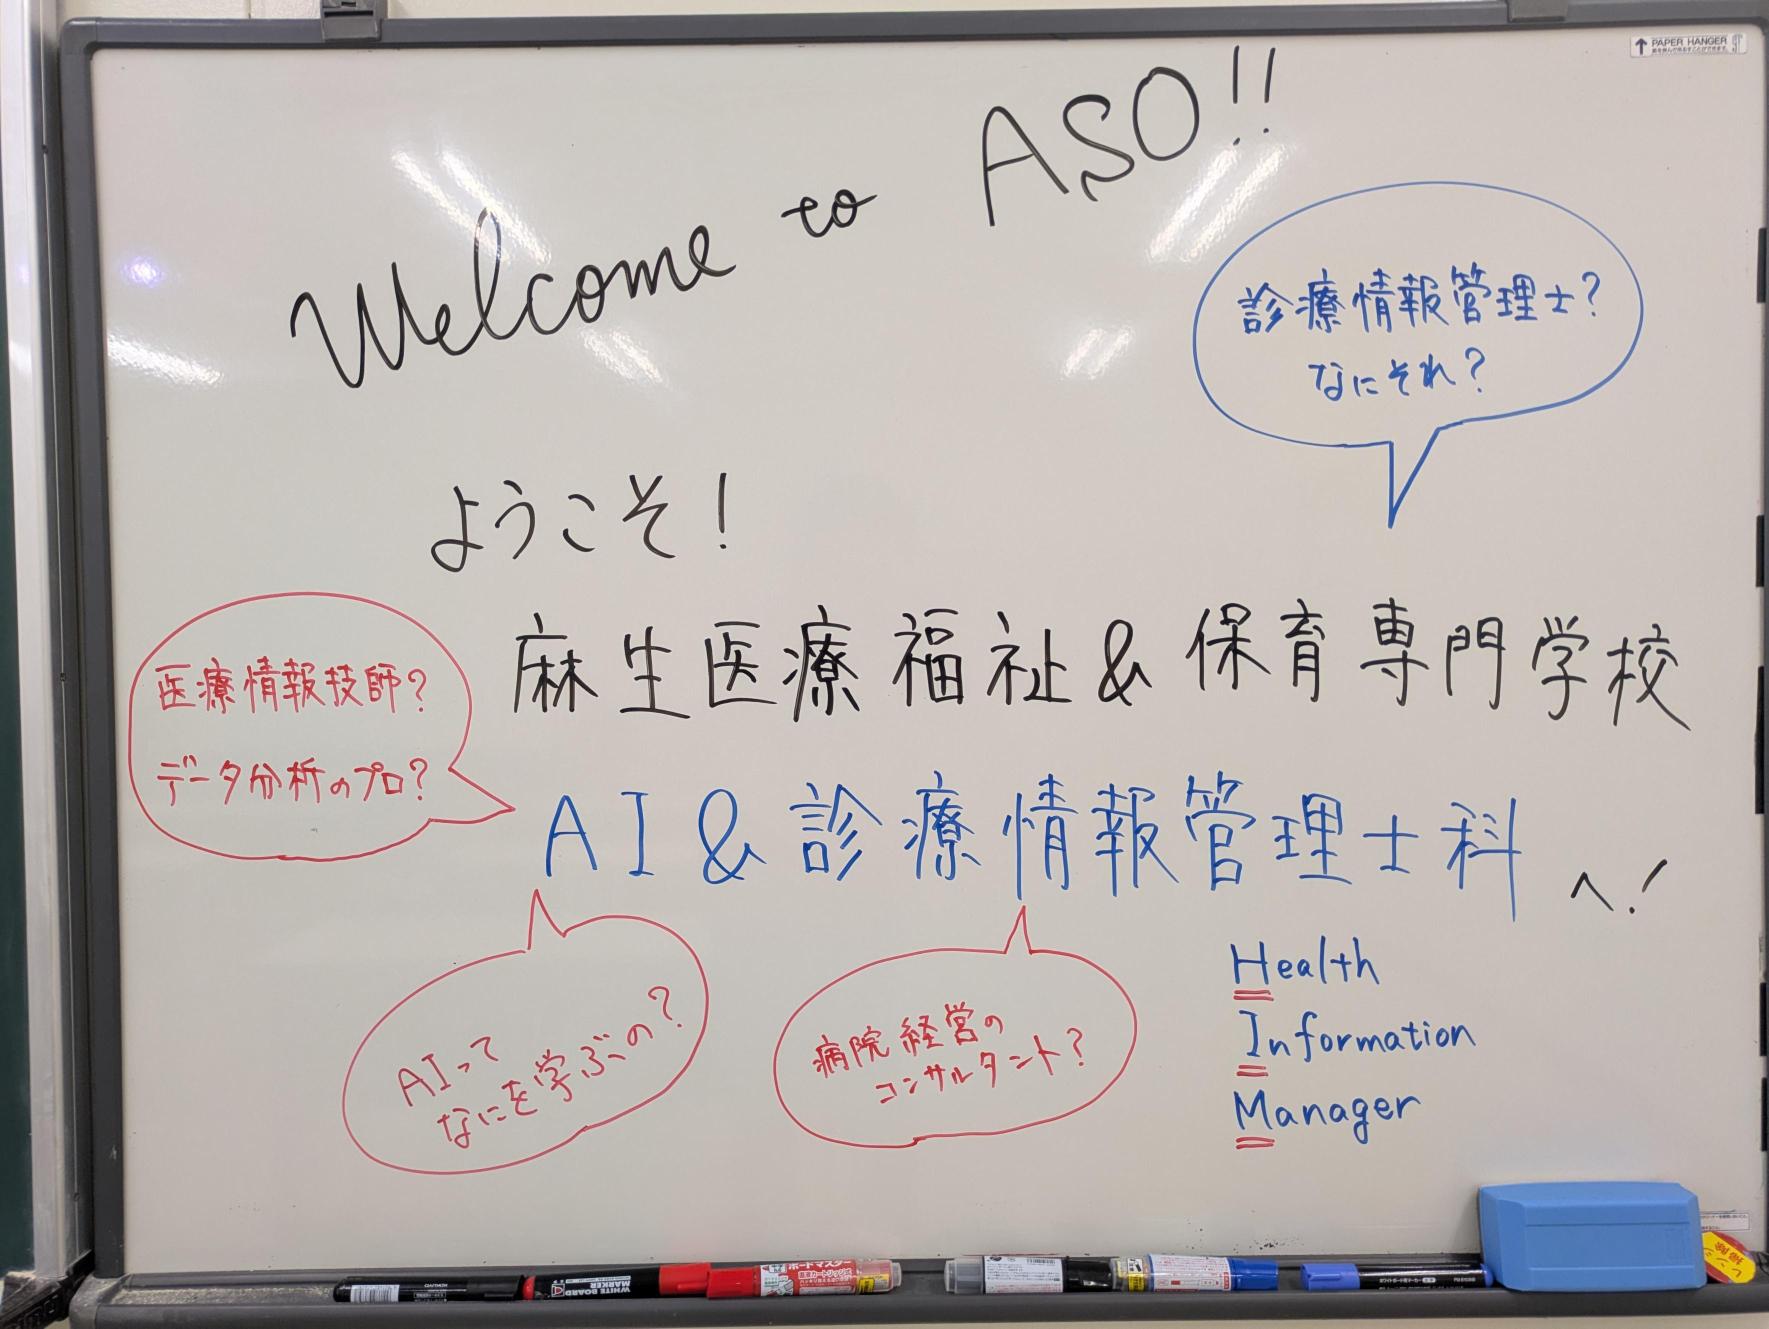 PAPER HANGER
Welcome to ASO!!
診療情報管理士?
なにそれ?
ようこそ!
麻生医療福祉&保育専門学校
医療情報技師?
データ分析のプロ?
AI&診療情報管理士科へ!
AIって
なにを学ぶの?
病院経営の
コンサルタント?
Health
Information
Manager
WHITE BOARD
MARKER
ボードマスター